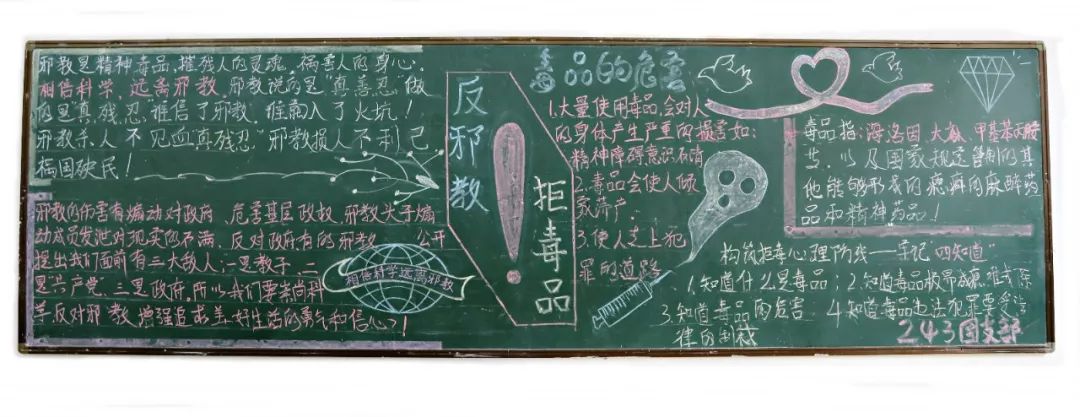 邪教是精神毒品,摧残人的灵魂,祸害人的身心,
相信科学、远离邪教,邪教说的是"真善忍"做
的是"真残忍"谁信了邪教,谁就入了火坑!
邪教杀人不见血真残忍,邪教损人不利己
祸国殃民!
邪教的伤害有煽动对政府、危害基层政权,邪教头子煽
动成员发泄对现实的不满,反对政府有的邪教 公开
提出我们面前有三大敌人:一是教子,二
是"共产党"三是政府,所以我们要崇尚科
学反对邪教,增强追求美好生活的勇气和信心?!
相信科学远离邪教
反邪教
!
拒毒品
毒品的危害
1.大量使用毒品,会对人
的身体产生严重的损害如:
精神障碍意识不清
2.毒品会使人倾
家荡产.
3.使人走上犯
罪的道路
毒品指:海洛因 大麻,甲基苯丙胺
等,以及国家规定管制的其
他能够形成的瘾癖的麻醉药
品和精神药品!
构筑拒毒心理防线——牢记"四知道"
1.知道什么是毒品;2.知道毒品极易成瘾,难以戒除
3.知道毒品的危害 4.知道毒品违法犯罪要受法
律的制裁
243团支部